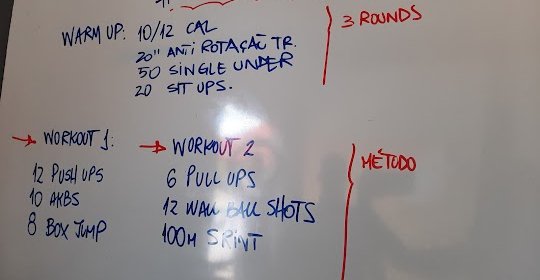 WARM UP: 10/12 CAL
20" ANTI ROTAÇAÕ TR.
50 SINGLE UNDER
20 SIT UPS.
3 ROUNDS
→ WORKOUT 1:
12 PUSH UPS
10 AKBS
8 BOX JUMP
→ WORKOUT 2
6 PULL UPS
12 WALL BALL SHOTS
100M SPRINT
MÉTODO